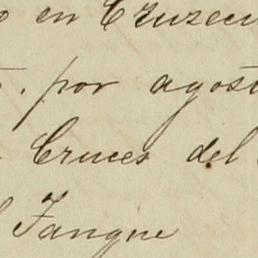 en Cruzeu
por agost
Cruces del
Fangue